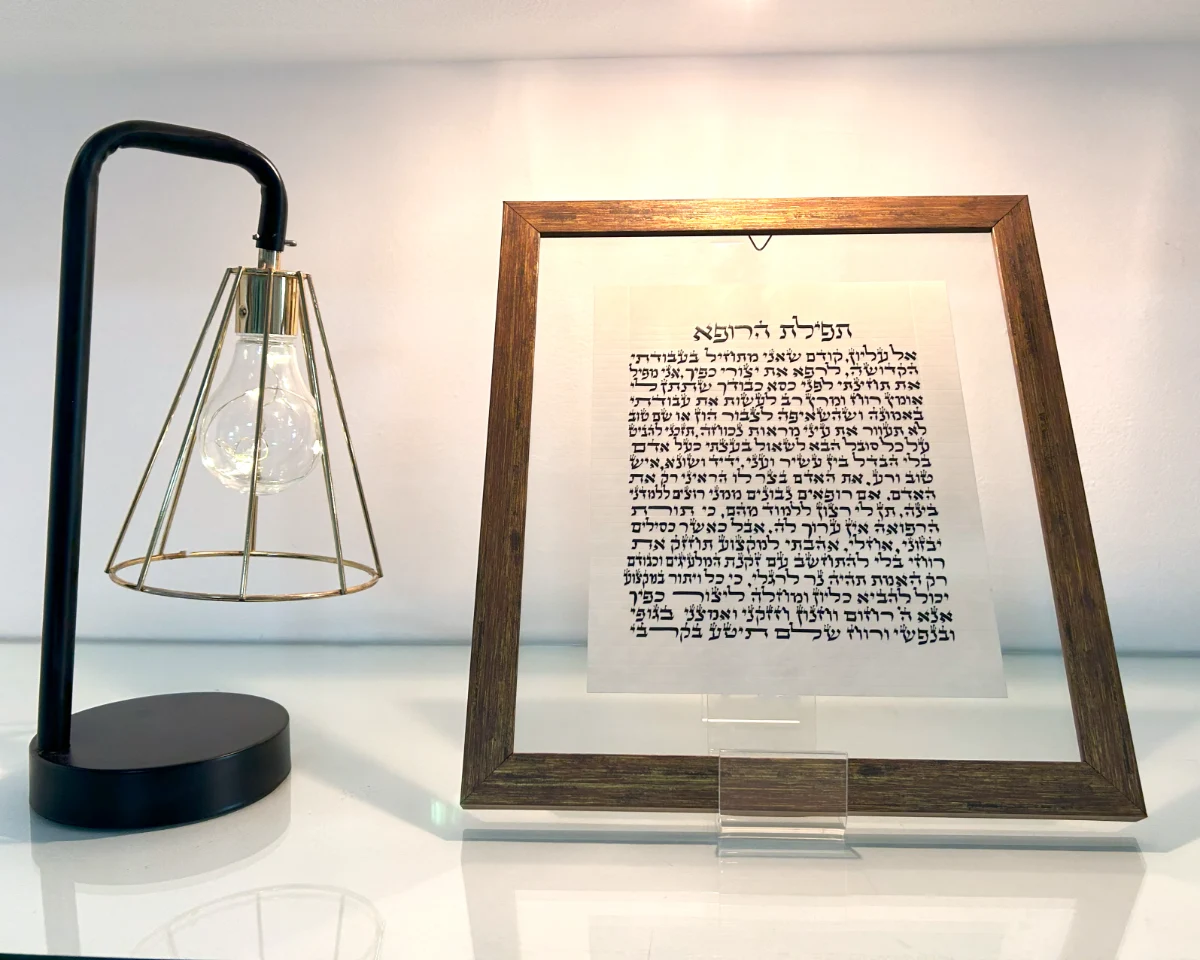 תפילת הרופא
אל עליון, קודם שאני מתחיל בעבודתי
הקדושה, לרפא את יצורי כפיך, אני מפיל
את תחינתי לפני כסא כבודך שתתן לי
אומץ רוח ומרץ רב לעשות את עבודתי
באמונה ושהשאיפה לצבור הון או שם טוב
לא תעוור את עיני מראות נכוחה. תזכני להביט
על כל סובל הבא לשאול בעצתי כעל אדם
בלי הבדל בין עשיר ועני, ידיד ושונא, איש
טוב ורע, את האדם בצר לו הראיני רק את
האדם. אם רופאים נבונים ממני רוצים ללמדני
בינה, תן לי רצון ללמוד מהם, כי תורת
הרפואה אין ערוך לה. אבל כאשר כסילים
יבזוני, אוחלי. אהבתי למקצוע תחזק את
רוחי בלי להתחשב עם זקנת המלעיגים וכבודם
רק האמת תהיה נר לרגלי, כי כל ויתור במקצוע
יכול להביא כליון ומחלה ליצור כפיך
אנא ה' רחום וחנון וחזקני ואמצני בגופי
ובנפשי ורוח שלם תיטע בקרבי